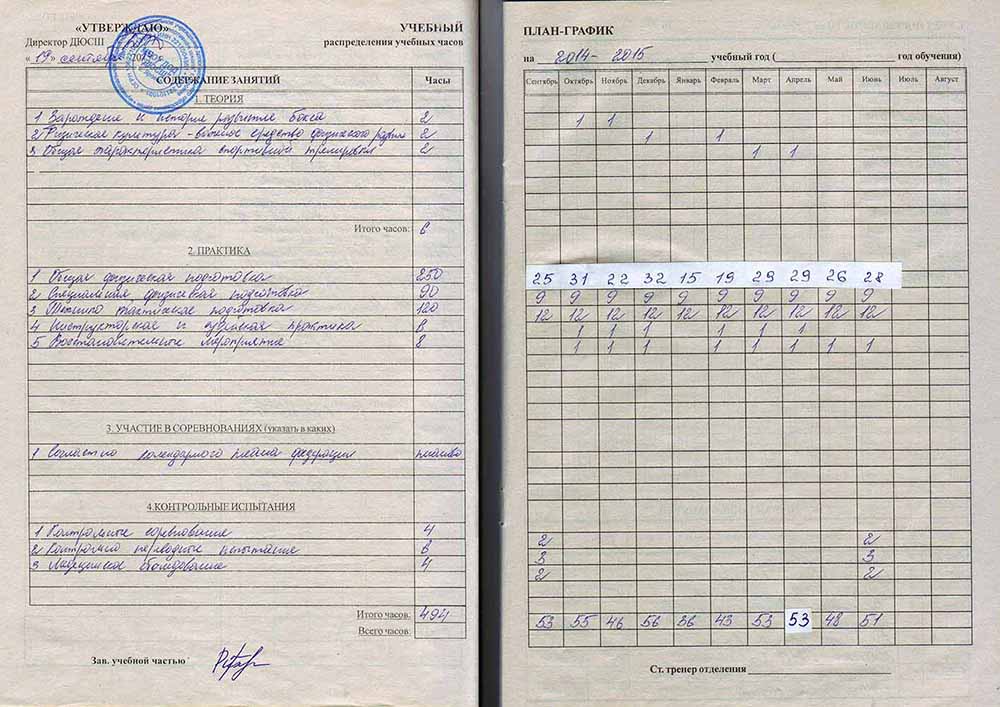 «УТВЕРЖДАЮ» УЧЕБНЫЙ
Директор ДЮСШ распределения учебных часов
«19» сентября 20
СОДЕРЖАНИЕ ЗАНЯТИЙ Часы
1. ТЕОРИЯ
1 Зарождение и история развития бокса 2
2 Физическая культура - важное средство физического развит 2
3 Общая характеристика спортивной тренировки 2
Итого часов: 6
2. ПРАКТИКА
1 Общая физическая подготовка 250
2 Специальная физическая подготовка 90
3 Технико тактическая подготовка 120
4 Инструкторская и судейская практика 8
5 Восстановительные мероприятия 8
3. УЧАСТИЕ В СОРЕВНОВАНИЯХ (указать в каких)
1 Согласно календарного плана федерации
4.КОНТРОЛЬНЫЕ ИСПЫТАНИЯ
1 Контрольные соревнования 4
2 Контрольно переводные испытание 6
3 Медицинское обследование 4
Итого часов: 494
Всего часов:
Зав. учебной частью
ПЛАН-ГРАФИК
на 2014-2015 учебный год ( год обучения)
Сентябрь Октябрь Ноябрь Декабрь Январь Февраль Март Апрель Май Июнь Июль Август
1 1
1 1
1 1
25 31 22 32 15 19 29 29 26 28
9 9 9 9 9 9 9 9 9 9
12 12 12 12 12 12 12 12 12 12
1 1 1 1 1 1
1 1 1 1 1 1 1 1
2 2
3 3
2 2
53 55 46 56 36 43 53 53 48 51
Ст. тренер отделения